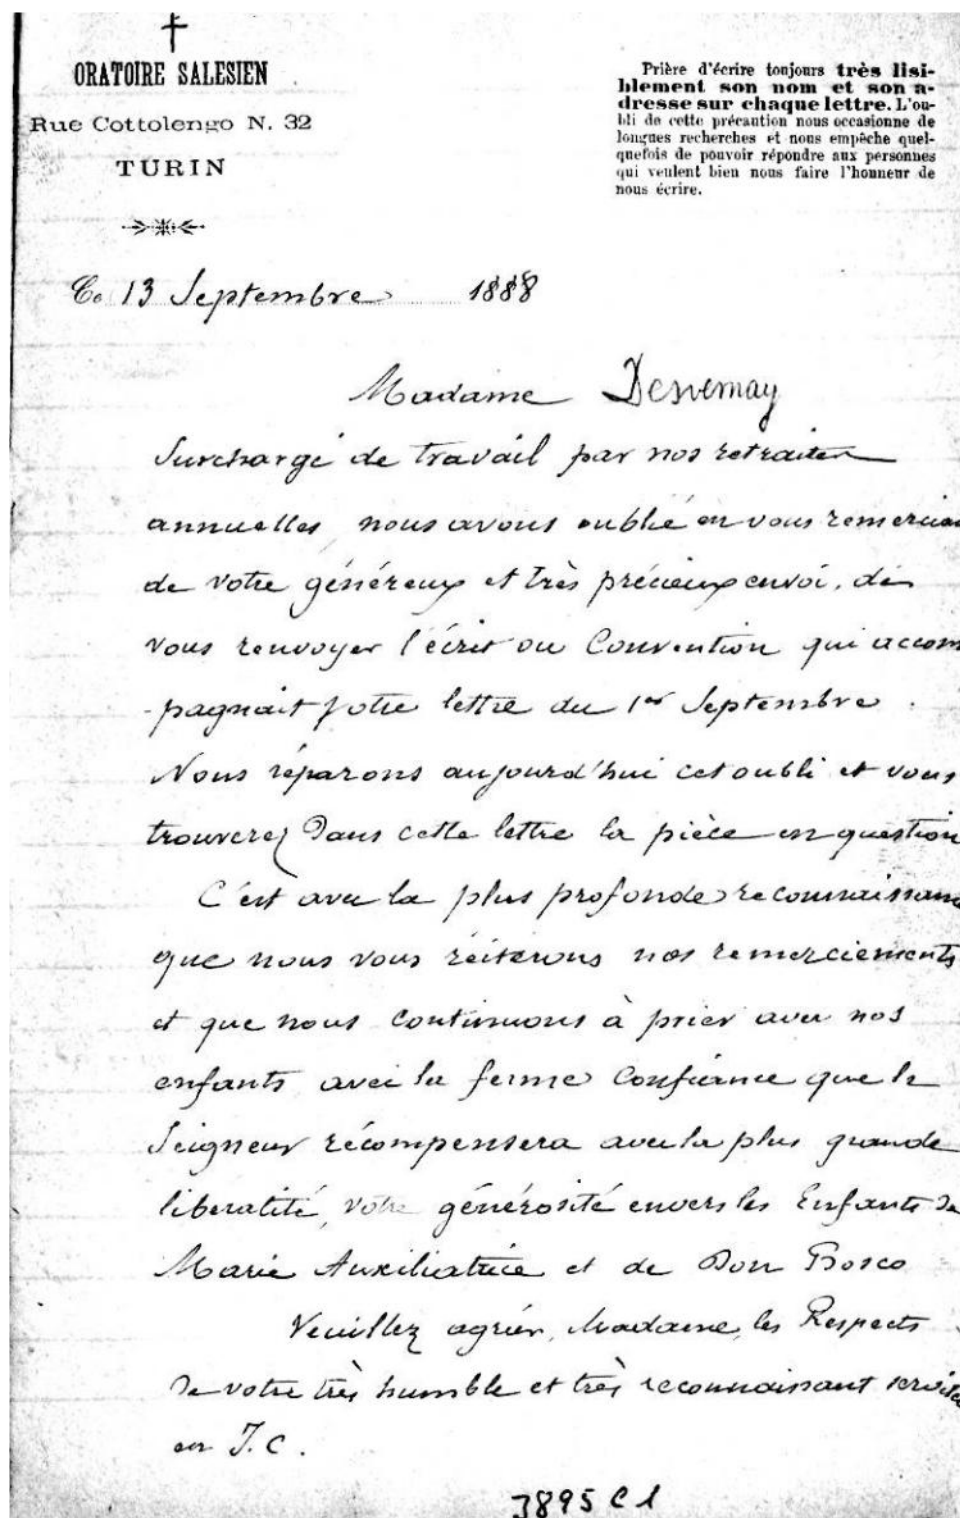 ORATOIRE SALESIEN
Rue Cottolengo N. 32
TURIN
Prière d'écrire toujours très lisi-
blement son nom et son a-
dresse sur chaque lettre. L'ou-
bli de cette précaution nous occasionne de
longues recherches et nous empêche quel-
quefois de pouvoir répondre aux personnes
qui veulent bien nous faire l'honneur de
nous écrire.
Ce 13 Septembre 1888
Madame Desvernay
Surchargé de travail par nos retraites
annuelles, nous avons oublié en vous remercian
de votre généreux et très précieux envoi, de
vous renvoyer l'écrit ou Convention qui accom
-pagnait votre lettre du 1er Septembre.
Nous réparons aujourd'hui cet oubli et vous
trouverez dans cette lettre la pièce en question
C'est avec la plus profonde reconnaissanc
que nous vous réiterons nos remerciements
et que nous continuons à prier avec nos
enfants avec la ferme confiance que le
Seigneur récompensera avec la plus grande
liberalité, votre générosité envers les Enfants de
Marie Auxiliatrice et de Don Bosco
Veuillez agréer, Madame, les Respects
de votre très humble et très reconnaissant servite
en J.C.
3895 C 1